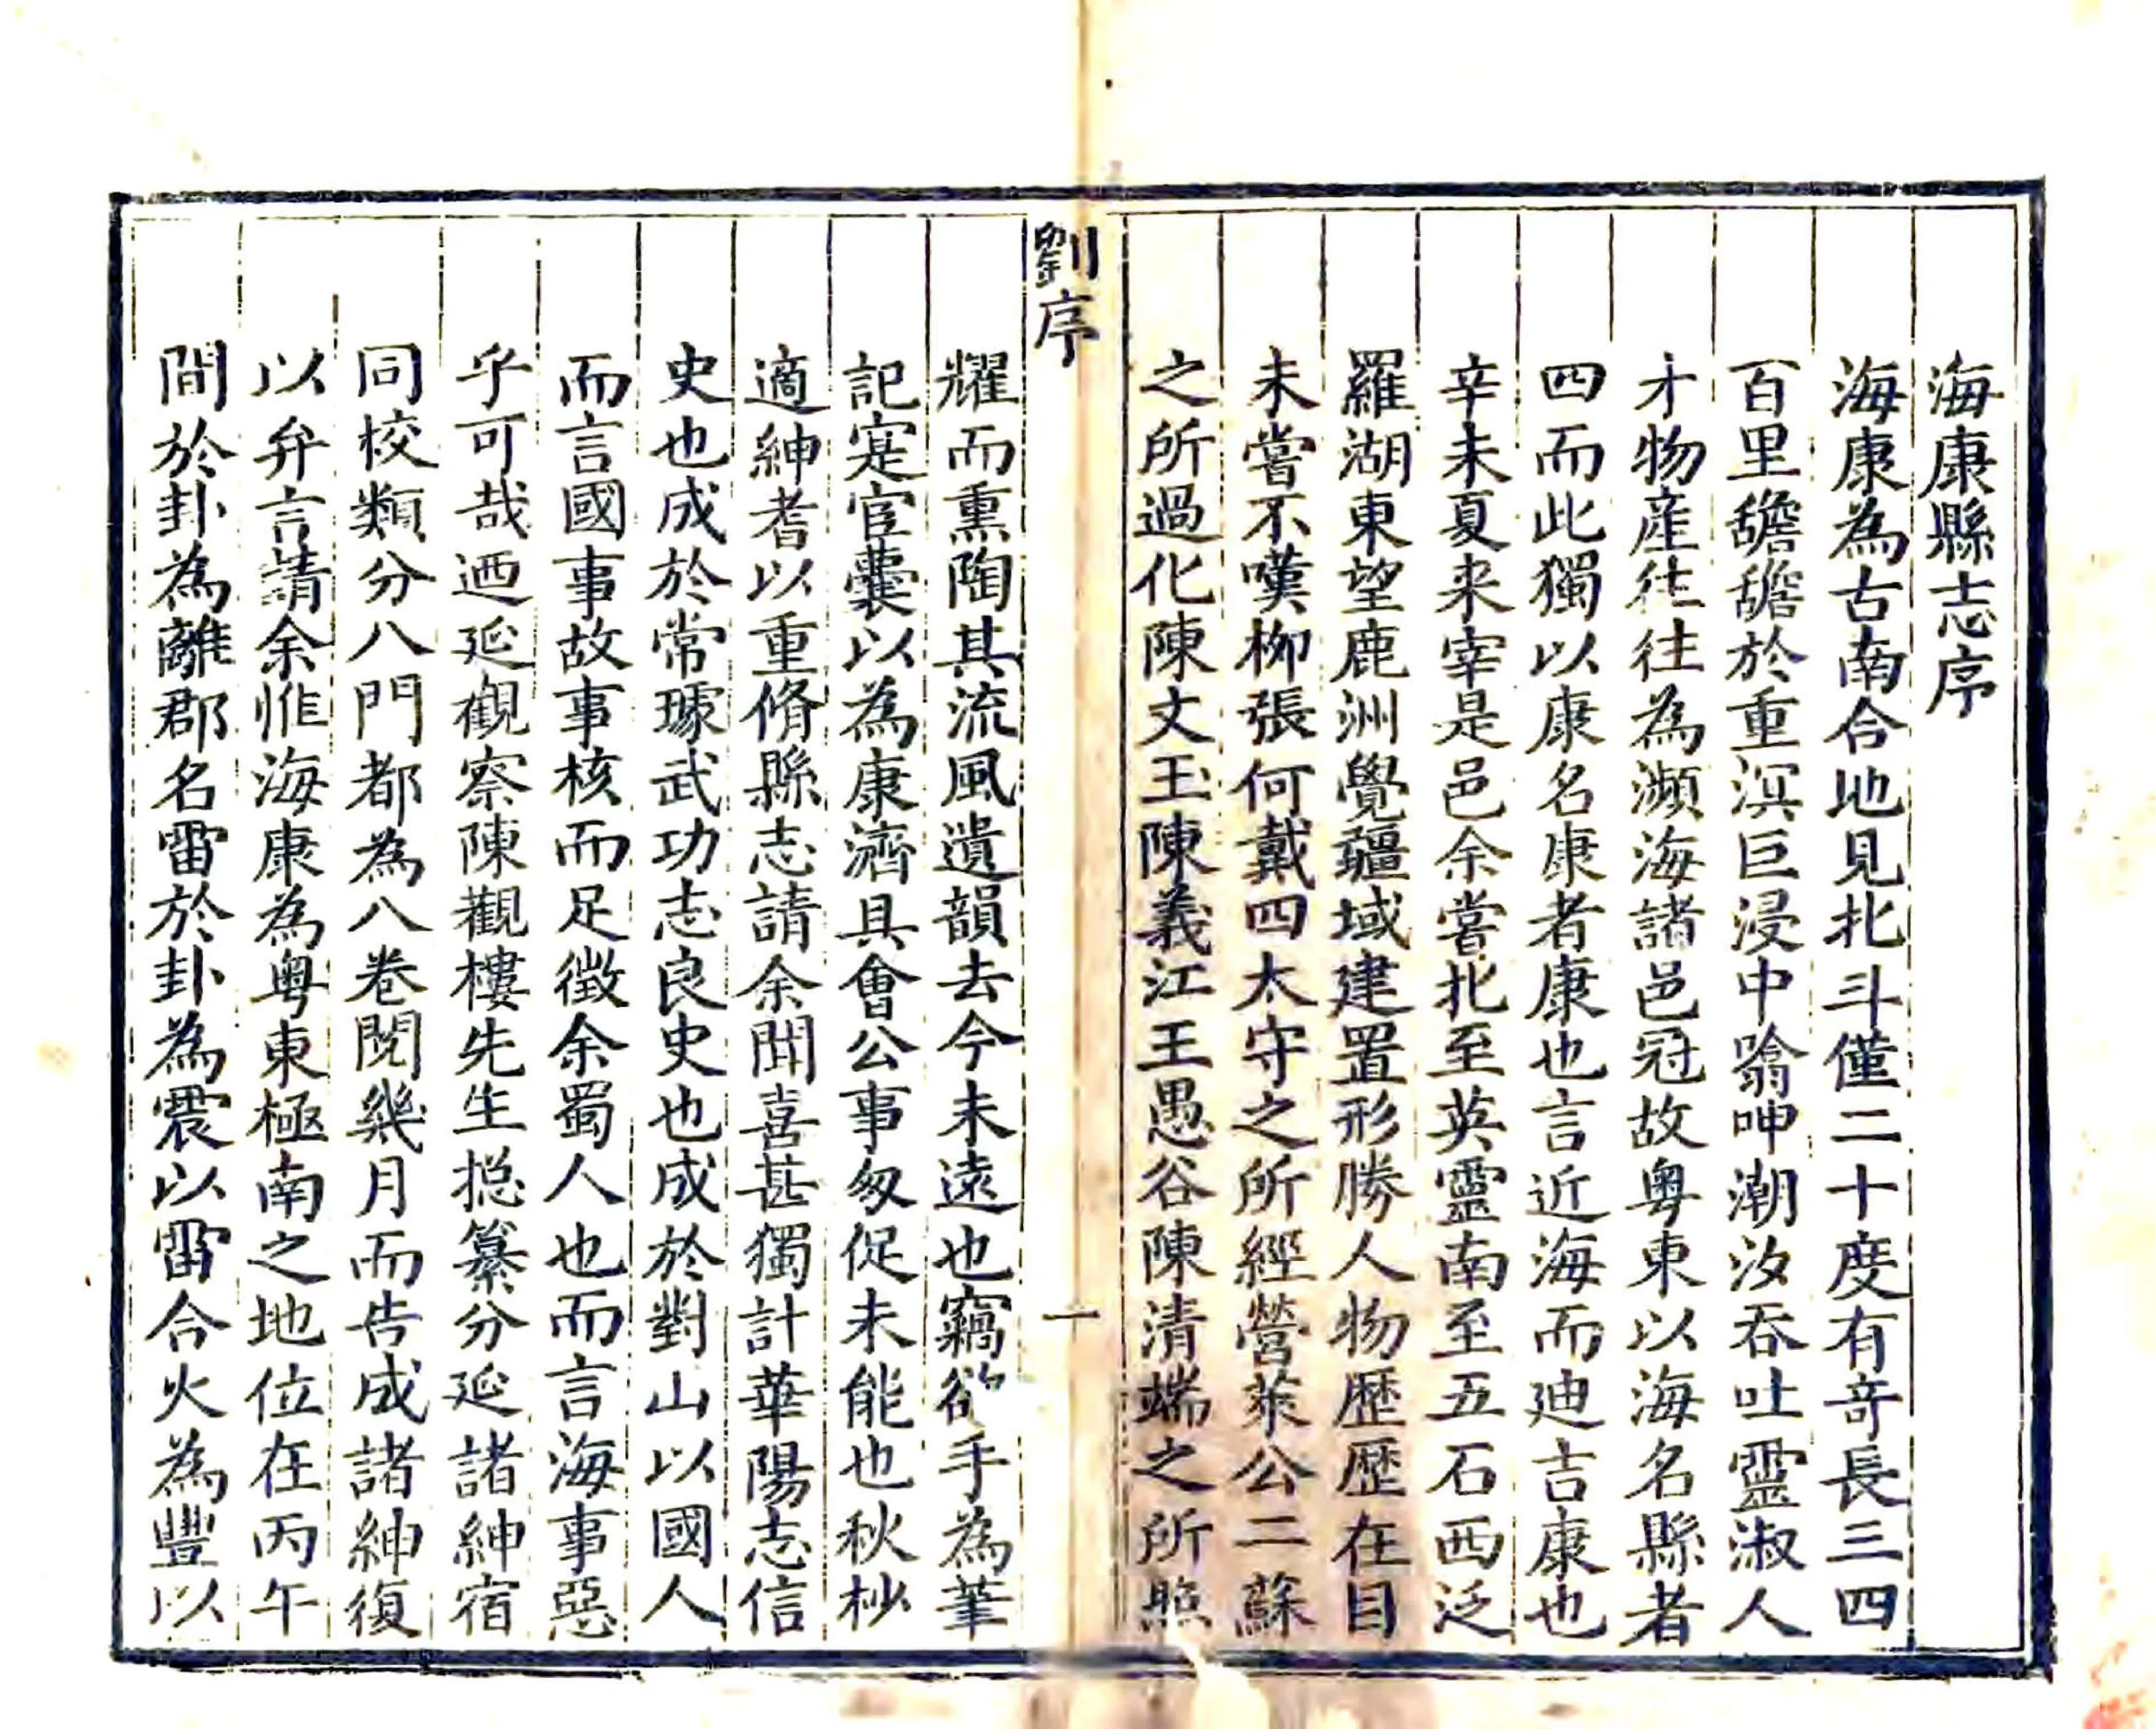 海康縣志序
海康為古南合地見北斗僅二十度有奇長三四
百里䧸䧸於重溟巨浸中噏呷潮汐吞吐靈淑人
才物産徃徃為瀕海諸邑冠故粤東以海名縣者
四而此獨以康名康者康也言近海而迪吉康也
辛未夏来宰是邑余嘗北至英靈南至五石西泛
羅湖東望鹿洲覺疆域建置形勝人物歷歷在目
未嘗不嘆栁張何戴四太守之所經營萊公二蘇
之所過化陳文玉陳義江王愚谷陳清端之所照
劉序
一
耀而熏陶其流風遺韻去今未遠也竊欲手為筆
記寔宦囊以為康濟具會公事匆促未能也秋杪
適紳耆以重脩縣志請余聞喜甚獨計華陽志信
史也成於常璩武功志良史也成於對山以國人
而言國事故事核而足徵余蜀人也而言海事惡
乎可哉迺延觀察陳觀樓先生捴纂分延諸紳宿
同校類分八門都為八卷閱幾月而告成諸紳復
以弁言請余惟海康為粤東極南之地位在丙午
間於卦為離郡名雷於卦為震以雷合火為豐以